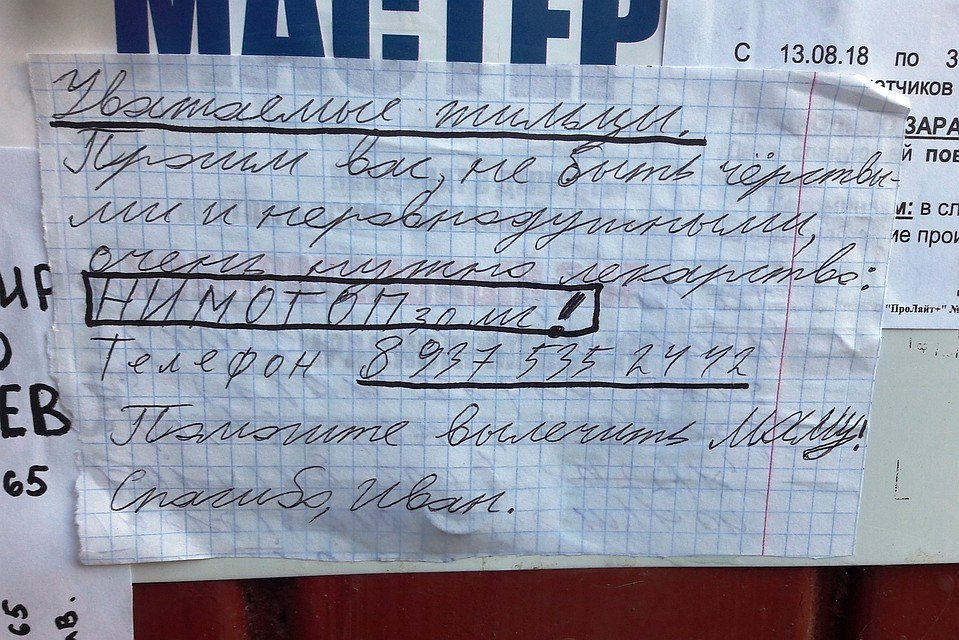 МАСТЕР
С 13.08.18 по 3
етчиков
ЗАРА
й пов
м: в сл
ие прои
"ПроЛайт+" №
Уважаемые жильцы.
Просим вас, не быть чёрствы-
ми и неравнодушными,
очень нужно лекарство:
НИМОТОП 30мг!
Телефон 8 937 535 2442
Помогите вылечить Маму!
Спасибо, Иван.
ИР
О
ЕВ
65
65